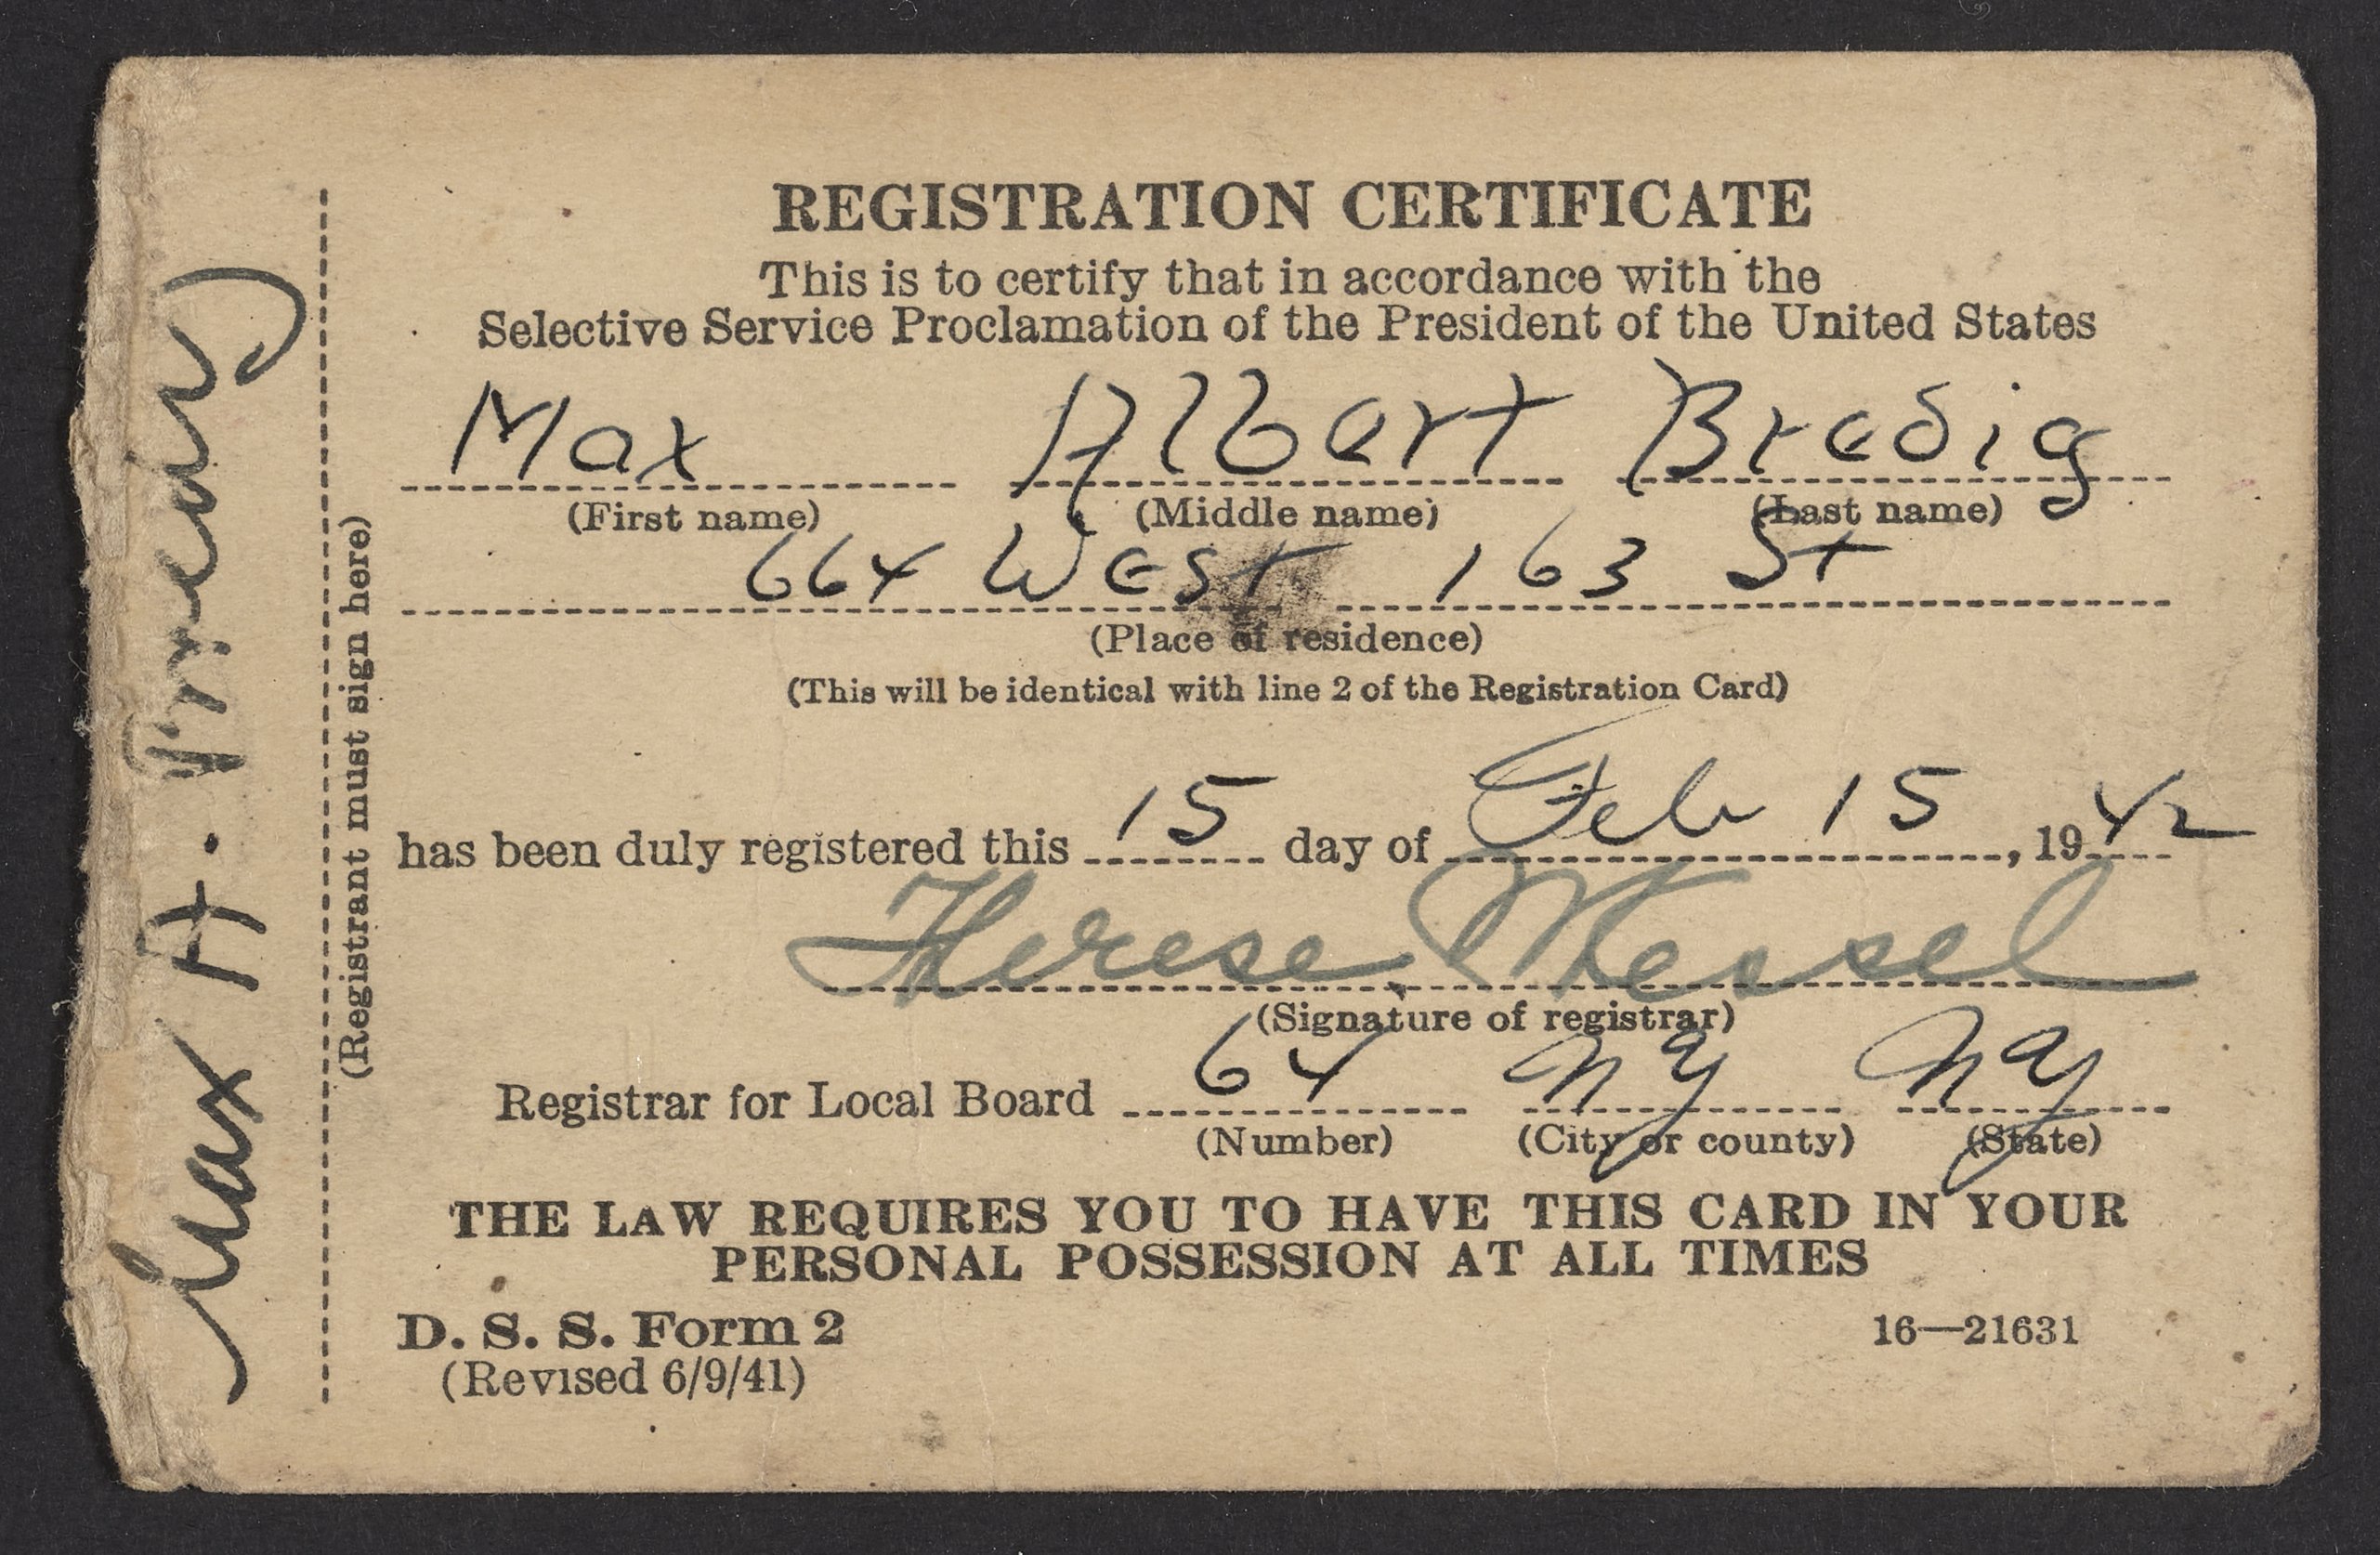 REGISTRATION CERTIFICATE
This is to certify that in accordance with the
Selective Service Proclamation of the President of the United States
Max Albert Bredig
(First name) (Middle name) (Last name)
664 West 163 St
(Place of residence)
(This will be identical with line 2 of the Registration Card)
has been duly registered this 15 day of Feb 15, 1942
Therese Wessel
(Signature of registrar)
Registrar for Local Board 64 NY NY
(Number) (City or county) (State)
THE LAW REQUIRES YOU TO HAVE THIS CARD IN YOUR
PERSONAL POSSESSION AT ALL TIMES
D. S. S. Form 2
(Revised 6/9/41)
16—21631
Max A. Bredig
(Registrant must sign here)